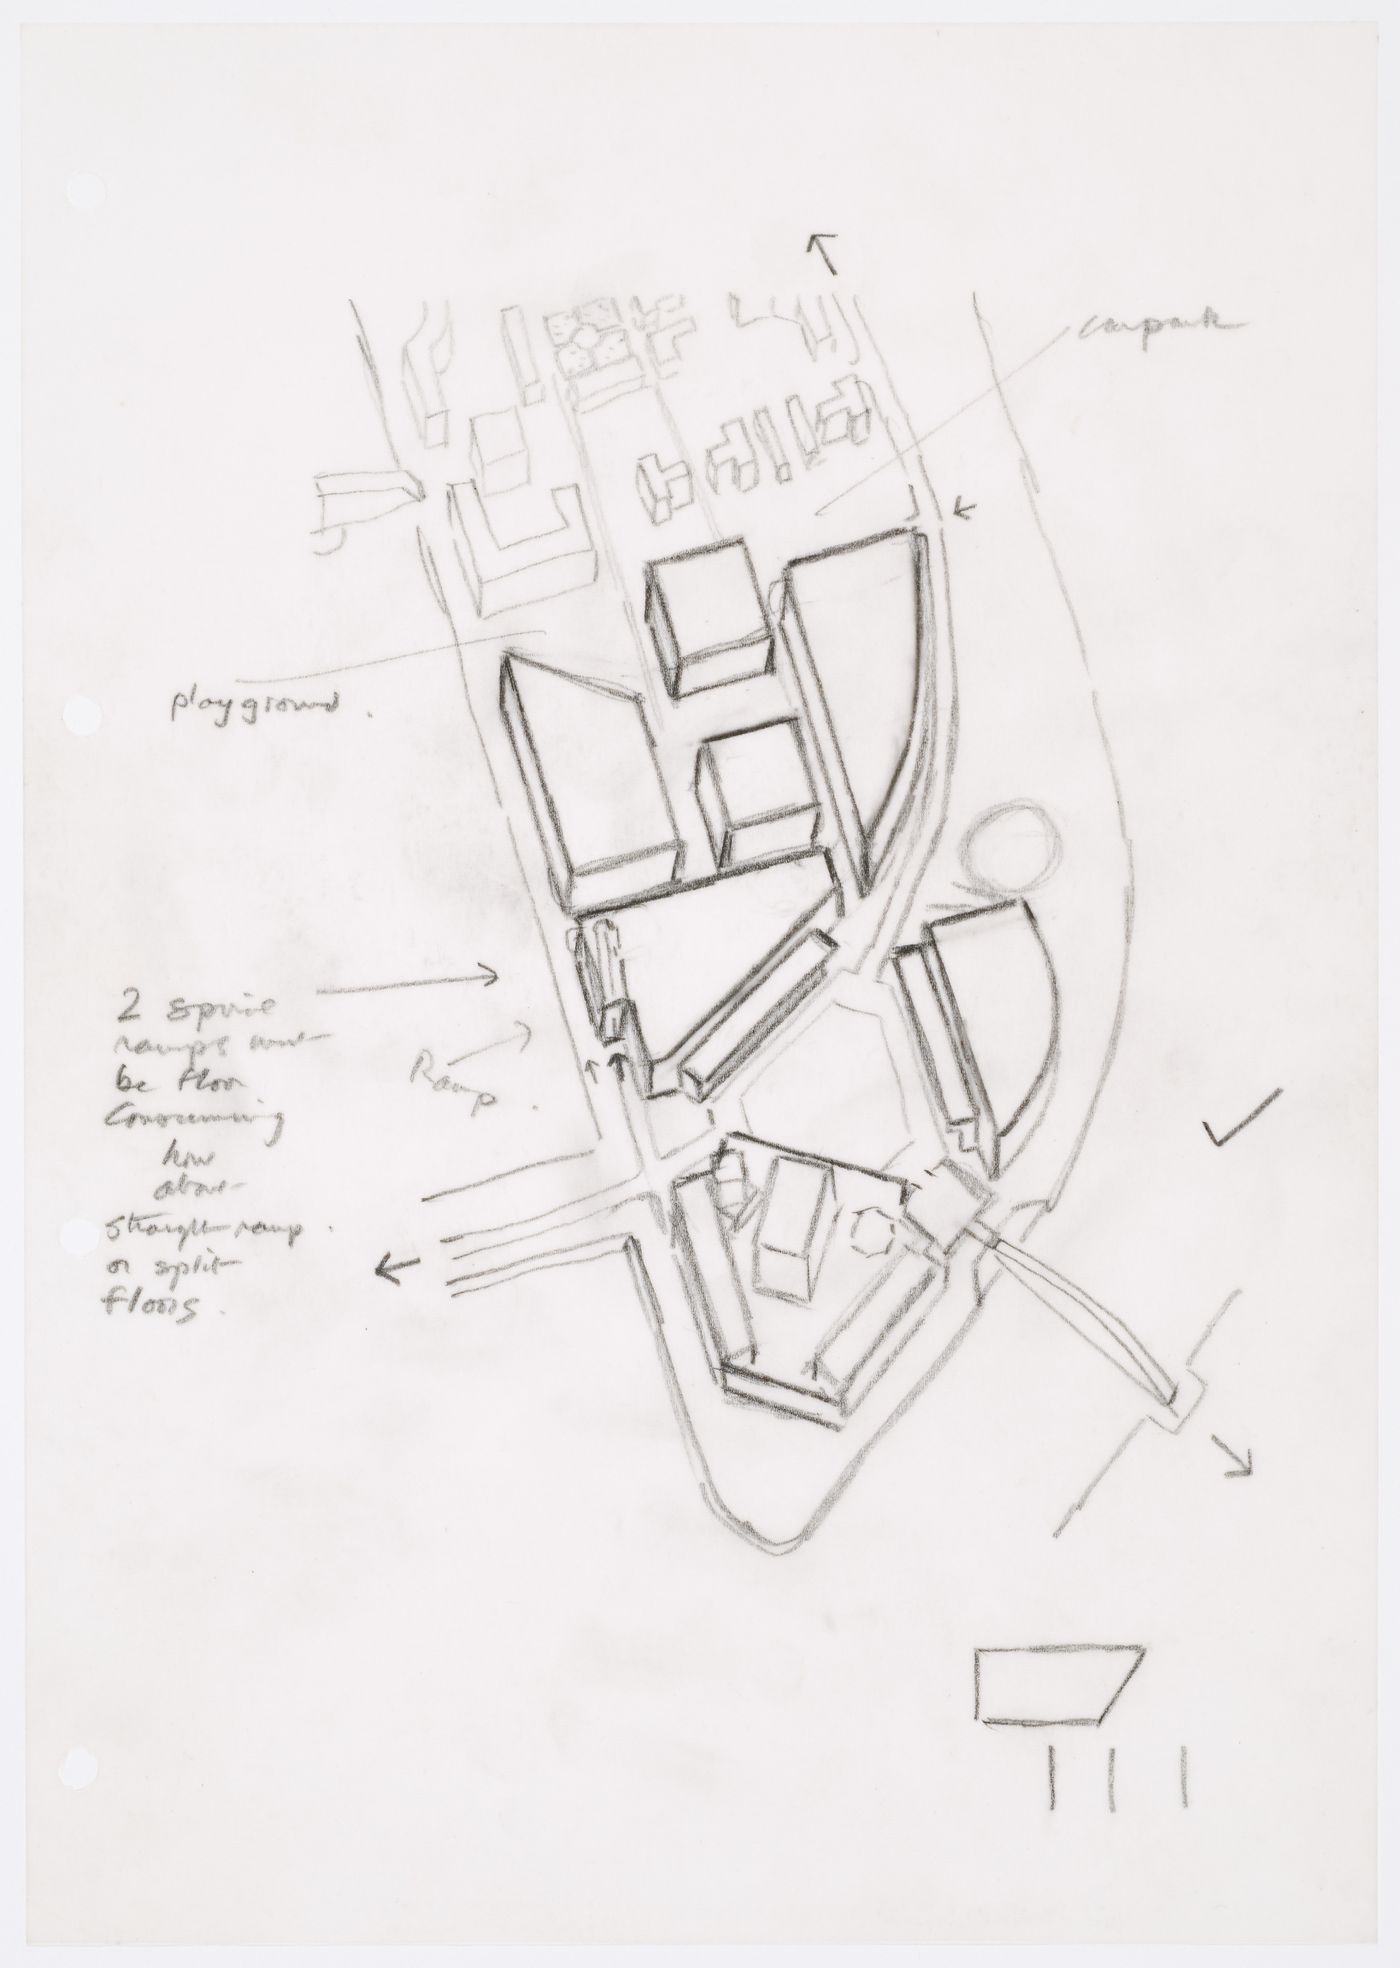 carpark
playground.
2 spiral
ramps
be floor
Consuming
how
about
straight ramp.
or split
floors.
Ramp.